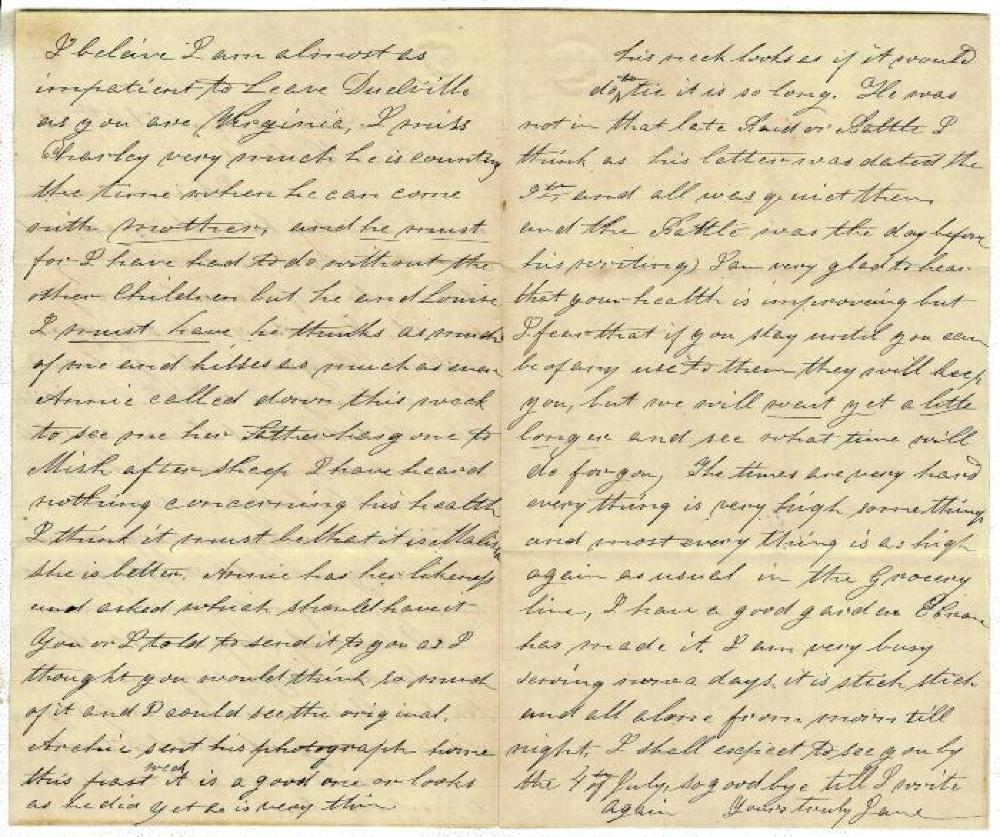 I beleive I am almost as
impatient to Leave Duelville
as you are Virginia, I miss
Charley very much he is counting
the time when he can come
with mother, and he must
for I have had to do without the
other Children but he and Louise
I must have he thinks as much
of me and kisses as much as ever
Annie called down this week
to see me her Father has gone to
Mish after sheep I have heard
nothing concerning his health
I think it must be that it is
she is better. Annie has her likeness
and asked which should have it
You or I told to send it to you as I
thought you would think so much
of it and I could see the original.
Archie sent his photograph home
this past week it is a good one or looks
as he did yet he is very thin
his neck looks as if it would
do to tie it is so long. He was
not in that late Raid or Battle I
think as his letter was dated the
9th and all was quiet then
and the Battle was the day before
his writing) I am very glad to hear
that your health is improveing but
I fear that if you stay until you can
be of any use to them they will keep
you, but we will wait yet a little
longer and see what time will
do for you, The times are very hard
every thing is very high some things
and most every thing is as high
again as usual in the Grocery
line, I have a good garden
has made it. I am very busy
sewing now a days, it is stich stich
and all alone from morn till
night. I shall expect to see you by
the 4th of July, so good bye till I write
again Yours truly Jane